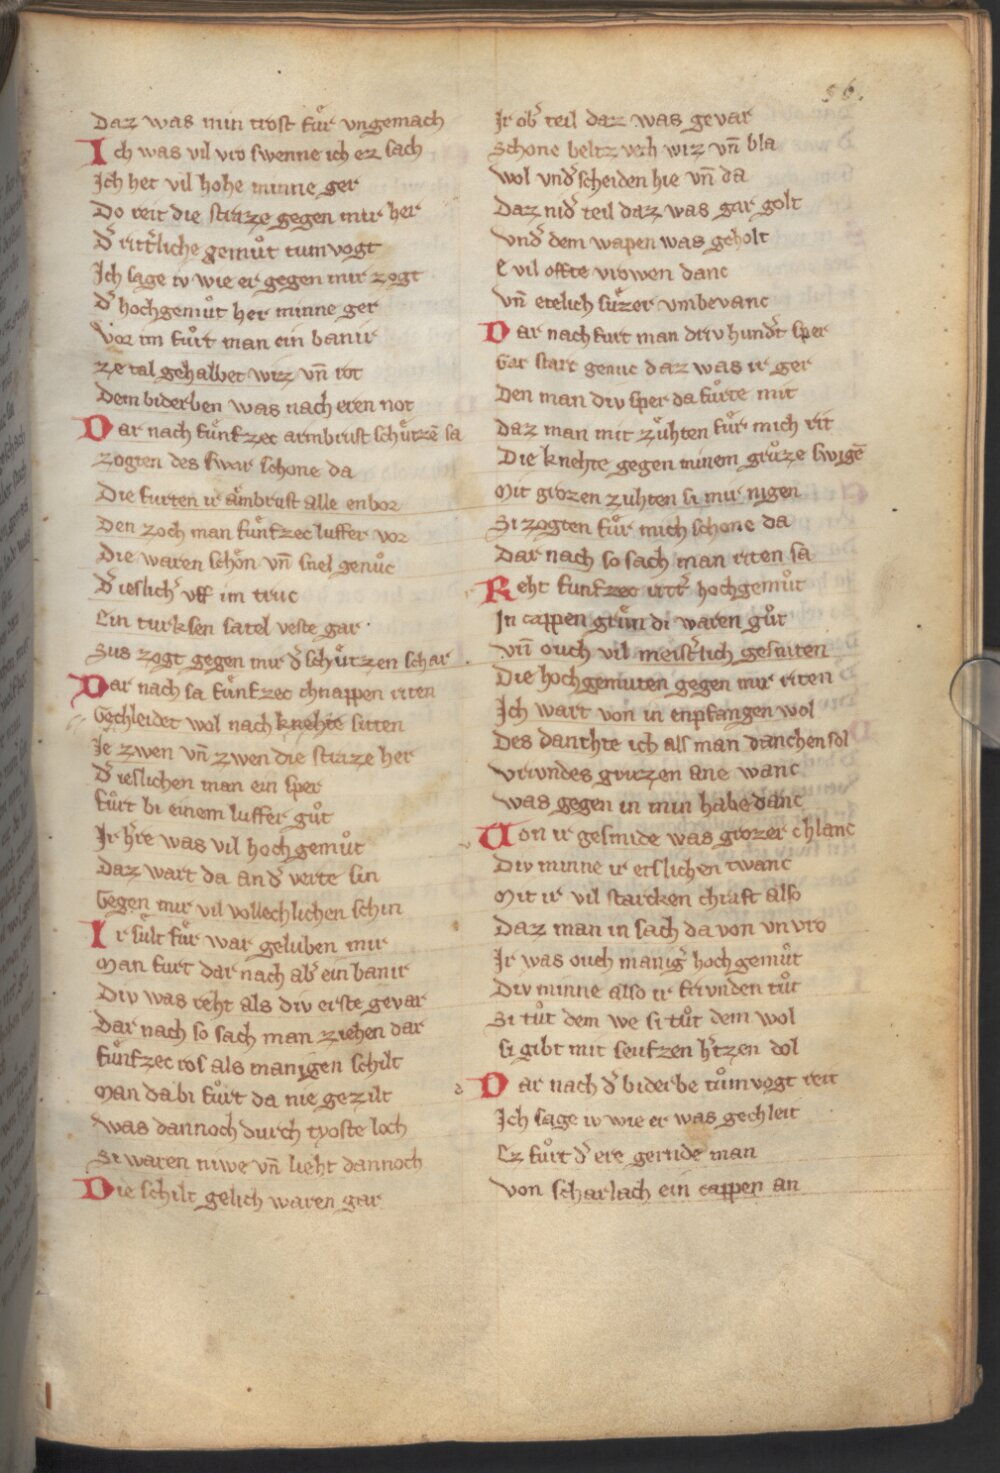 56.
Daz was min trost fuͤr vngemach
Ich was vil vro swenne ich ez sach
Ich het vil hohe minne ger
Do reit die straze gegen mir her
D͛ ritt͛liche gemuͦt tumvogt
Ich sage iv wie er gegen mir zogt
D͛ hochgemuͦt her minne ger
Vor im fuͦrt man ein banir
ze tal gehalbet wiz vn̄ rot
Dem biderben was nach eren not
Dar nach fuͤnfzec armbrust schuͤtzē sa
zogten des swar schone da
Die furten ir aͤmbrust alle enbor
Den zoch man fuͤnfzec luffer vor
Die waren schoͤn vn̄ snel genuͦc
D͛ ieslich͛ vff im truc
Ein turksen satel veste gar
Sus zogt gegen mir d͛ schuͤtzen schar
Dar nach sa fuͤnfzec chnappen riten
Gechleidet wol nach knehte sitten
Je zwen vn̄ zwen die straze her
D͛ ieslichen man ein sper
fuͦrt bi einem luffer guͦt
Ir h͛re was vil hochgemuͦt
Daz wart da an d͛ verte sin
Gegen mir vil vollechlichen schin
Ir suͤlt fuͤr war gelvben mir
Man furt dar nach ab͛ ein banir
Div was reht als div erste gevar
Dar nach so sach man ziehen dar
fuͤnfzec ros als manigen schilt
Man da bi fuͦrt da nie gezilt
Was dannoch durch tyoste loch
Si waren niwe vn̄ lieht dannoch
Die schilt gelich waren gar
Ir ob͛ teil daz was gevar
Schone beltz veh wiz vn̄ bla
Wol vnd͛scheiden hie vn̄ da
Daz nid͛ teil daz was gar golt
Vnd͛ dem wapen was geholt
E vil offte vrowen danc
Vn̄ etelich suͤzer vmbevanc
Dar nach furt man driv hund͛t sper
Gar starc genuc daz was ir ger
Den man div sper da fuͦrte mit
Daz man mit zuͤhten fuͤr mich rit
Die knehte gegen minem gruͦze swigē
Mit grozen zuhten si mir nigen
Si zogten fuͤr mich schone da
Dar nach so sach man riten sa
Reht funfzec ritt͛ hochgemuͦt
In cappen gruͤn di waren guͦt
Vn̄ ouch vil meist͛lich gesniten
Die hochgemuten gegen mir riten
Ich wart von in enpfangen wol
Des danchte ich als man danchen sol
Vrivndes gruzen ane wanc
Was gegen in min habedanc
Von ir gesmide was grozer chlanc
Div minne ir etslichen twanc
Mit ir vil starcken chraft also
Daz man in sach da von vnvro
Ir was ouch manig͛ hochgemuͦt
Div minne also ir frivnden tuͦt
Si tuͦt dem we si tuͦt dem wol
si gibt mit seufzen h͛tzen dol
Dar nach d͛ biderbe tuͦmvogt reit
Ich sage iv wie er was gechleit
Ez fuͦrt d͛ ere gernde man
Von scharlach ein cappen an